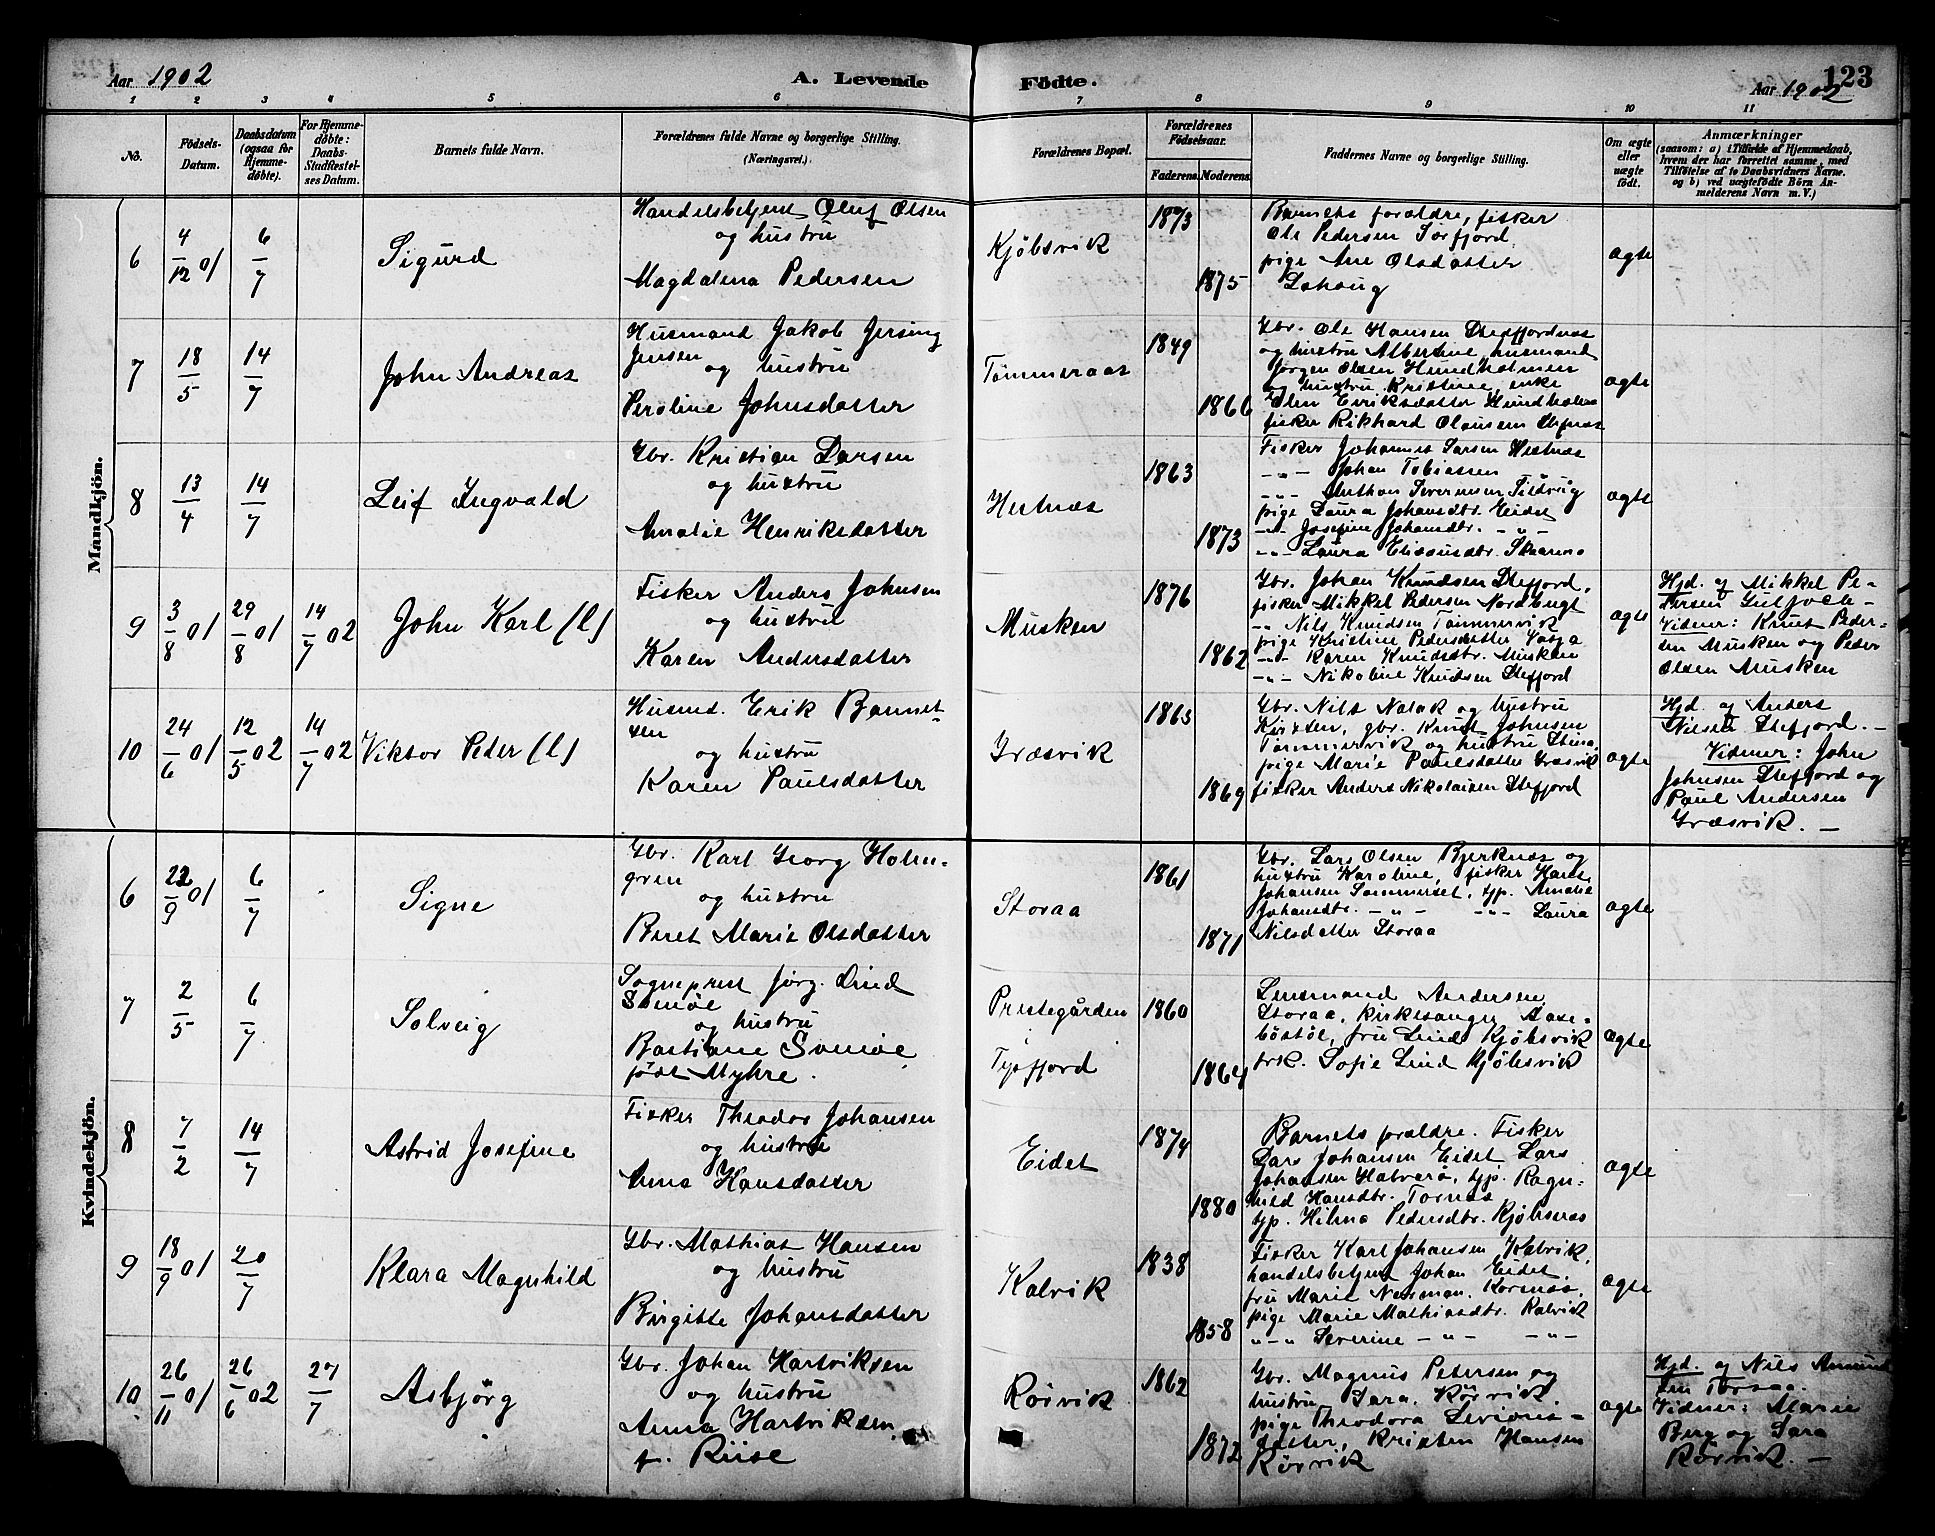 Aar 1902
A. Levende Födte.
123
Aar 1902
1 2 3 4 5 6 7 8 9 10 11
No.
Födsels-
Datum.
Daabsdatum
(ogsaa for
Hjemme-
døbte).
For Hjemme-
døbte:
Daabs-
Stadfæstel-
ses Datum.
Barnets fulde Navn.
Forældrenes fulde Navne og borgerlige Stilling.
(Næringsvei.)
Forældrenes Bopæl.
Forældrenes
Födselsaar.
Faderens. Moderens.
Faddernes Navne og borgerlige Stilling.
Om ægte
eller
uægte
født.
Anmærkninger
(saasom: a) i Tilfælde af Hjemmedaab,
hvem der har forrettet samme, med
Tilføielse af to Daabsvidners Navne.
og b) ved uægtefødte Börn An-
melderens Navn m. V.)
Mandkjön.
6
4/12 01
6/7
Sigurd
Handelsbetjent Oluf Olsen
og hustru
Magdalena Pedersen
Kjöbsvik
1873
1875
Barnets forældre, fisker
Ole Pedersen Sörfjord
pige Ane Olsdatter
agte
7
18/5
14/7
John Andreas
Husmand Jakob Jersing
Jensen og hustru
Peroline Johnsdatter
Tömmeraas
1849
1866
Gbr. Ole Hansen Stefjordnæs
og hustru Albertine, husmand
Jörgen Olsen Hundholmen
og hustru Kristine, enke
Elen Eriksdatter Hundholm
fisker Rikhard Olausen
agte
8
13/4
14/7
Leif Ingvald
Gbr. Kristian Larsen
og hustru
Amalie Henriksdatter
Hestnæs
1863
1873
Fisker Johannes Larsen Hestnæs
-"- Johan Tobiassen
-"- Anthon Severinsen
pige Laura Johansdtr. Eidet
-"- Josefine Johansdtr. -"-
-"- Laura
agte
9
3/8 01
29/8 01
14/7 02
John Karl (l)
Fisker Anders Johnsen
og hustru
Karen Andersdatter
Musken
1876
1862
Gbr. Johan Knudsen Stefjord,
fisker Mikkel Pedersen Nordbugt
" Nils Knudsen Tömmervik
pige Kristine Pedersdatter
-"- Karen Knudsdtr. Musken
-"- Nikoline Knudsen Stefjord
agte
Hjd. af Mikkel Pe-
dersen
Vidner: Knut Peder-
sen Musken og Peder
Olsen Musken
10
24/6 01
12/5 02
14/7 02
Viktor Peder (l)
Husmd. Erik Bannet-
sen
og hustru
Karen Paulsdatter
Græsvik
1863
1869
Gbr. Nils Nalak og hustru
Kirsten, gbr. Knut Johnsen
Tömmervik og hustru Stina,
pige Marie Paulsdatter Græsvik
fisker Anders Nikolaisen Stefjord
agte
Hjd. af Anders
Nilsen Stefjord. –
Vidner: John
Johnsen Stefjord og
Paul Andersen
Græsvik. –
Kvindekjön.
6
22/9 01
6/7
Signe
Gbr. Karl Georg Holm-
gren
og hustru
Beret Marie Olsdatter
Storaa
1861
1871
Gbr. Lars Olsen Bjerknæs og
hustru Karoline, fisker Hans
Johansen Sommerset, tjp. Amalie
Johansdtr. -"- -"- Laura
Nilsdatter Storaa
agte
7
2/5
6/7
Solveig
Sogneprest Jörg. Lind
Svenöe
og hustru
Bastiane Svenöe
född Myhre.
Prestegården
Tysfjord
1860
1864
Lensmand Andersen
Storaa, kirkesanger Aase-
böstöl, fru Lind Kjöbsvik
frk. Sofie Lind Kjöbsvik
agte
8
7/2
14/7
Astrid Josefine
Fisker Theodor Johansen
og hustru
Anna Hansdatter
Eidet
1874
1880
Barnets forældre. Fisker
Lars Johansen Eidet Lars
Johansen Halvarö, tjp. Ragn-
hild Hansdtr. Tornæs
tjp. Hilma Pedersdtr. Kjöbsnæs
agte
9
18/9 01
20/7
Klara Magnhild
Gbr. Mathias Hansen
og hustru
Birgitte Johansdatter
Kalvik
1838
1858
Fisker Karl Johansen, Kalvik,
handelsbetjent Johan Eidet,
fru Marie Norman. Kornæs,
pige Marie Mathiasdtr. Kalvik
"-" Severine -"- -"-
agte
10
26/11 01
26/6 02
27/7
Asbjörg
Gbr. Johan Hartviksen
og hustru
Anna Hartviksen
f. Riise
Rörvik
1862
1872
Gbr. Magnus Petersen og
hustru Sara, Rörvik.
pige Theodora
datter, Kristen Hansen
Rörvik
agte
Hjd. af Nils Amund
sen Torsaa.
Vidner: Marie
Berg og Sara
Rörvik. –